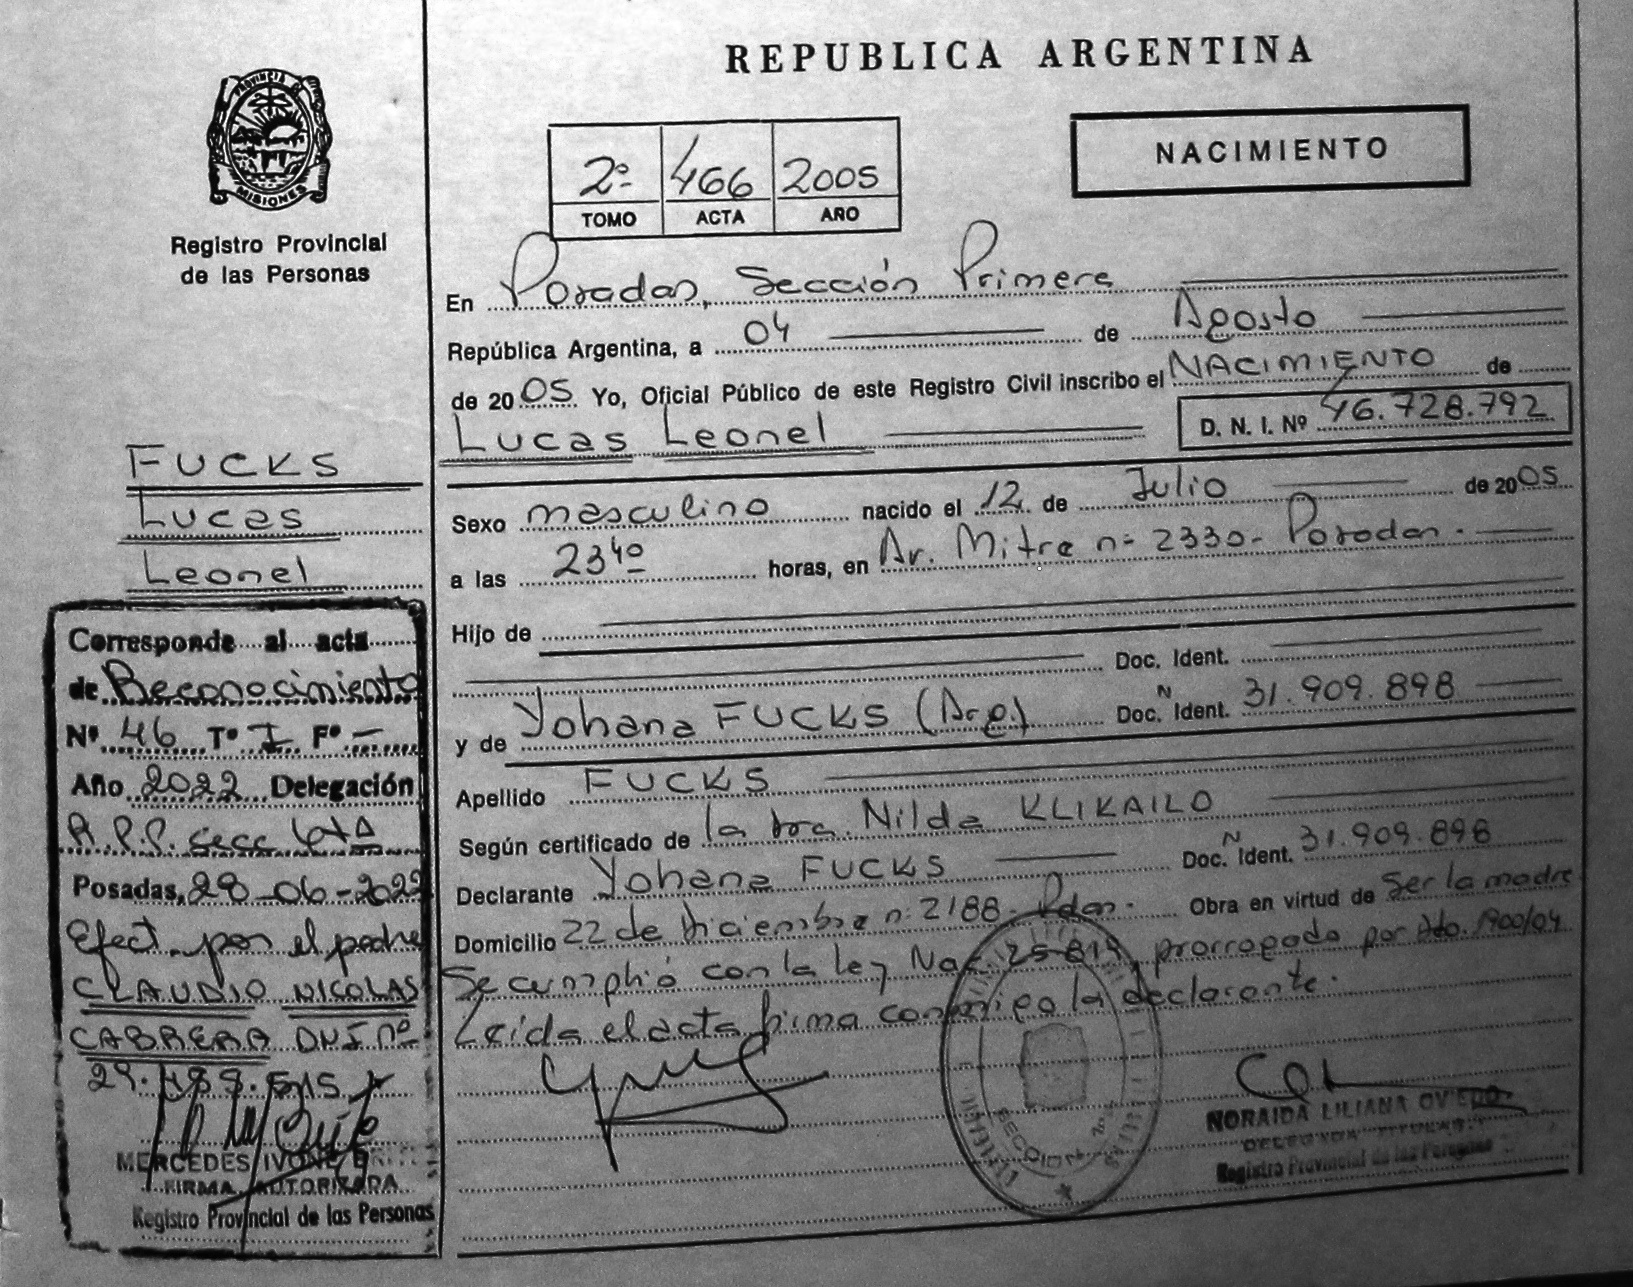 PROVINCIA
MISIONES
Registro Provincial
de las Personas
FUCKS
Lucas
Leonel
Corresponde al acta
de Reconocimiento
Nº 46 Tº I Fº -
Año 2022 Delegación
R.P.P. Secc 6ta
Posadas, 28-06-2022
Efect. por el padre
CLAUDIO NICOLAS
CABRERA DNI nº
MERCEDES IVONE
FIRMA AUTORIZADA
Registro Provincial de las Personas
REPUBLICA ARGENTINA
2º 466 2005
TOMO ACTA AÑO
NACIMIENTO
En Posadas, Sección Primera
República Argentina, a 04 de Agosto
de 2005 Yo, Oficial Público de este Registro Civil inscribo el NACIMIENTO de
Lucas Leonel D. N. I. Nº 46.728.792
Sexo masculino nacido el 12 de Julio de 2005
a las 23 40 horas, en Av. Mitre nº 2330 - Posadas.
Hijo de
Doc. Ident.
y de Yohana FUCKS (Arg.) N Doc. Ident. 31.909.898
Apellido FUCKS
Según certificado de la Dra. Nilda KLIKAILO
Declarante Yohana FUCKS N Doc. Ident. 31.909.898
Domicilio 22 de Diciembre nº 2188 - Pdas. Obra en virtud de ser la madre
Se cumplió con la ley Nac. 25.819, prorrogada por Dto. 1900/04
Leída el acta firma conmigo la declarante.
SECCION
NORAIDA LILIANA OVIEDO
Registro Provincial de las Personas